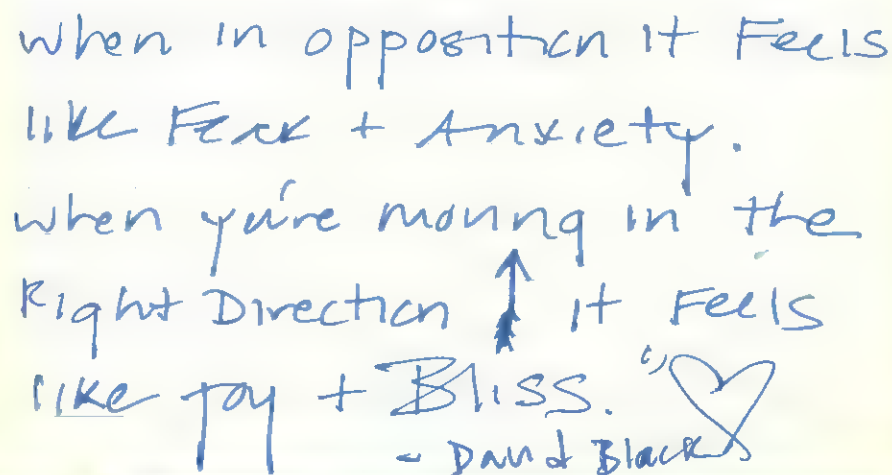 when in opposition it Feels
like Fear + Anxiety.
when you're moving in the
Right Direction it Feels
like Joy + Bliss."
- David Black